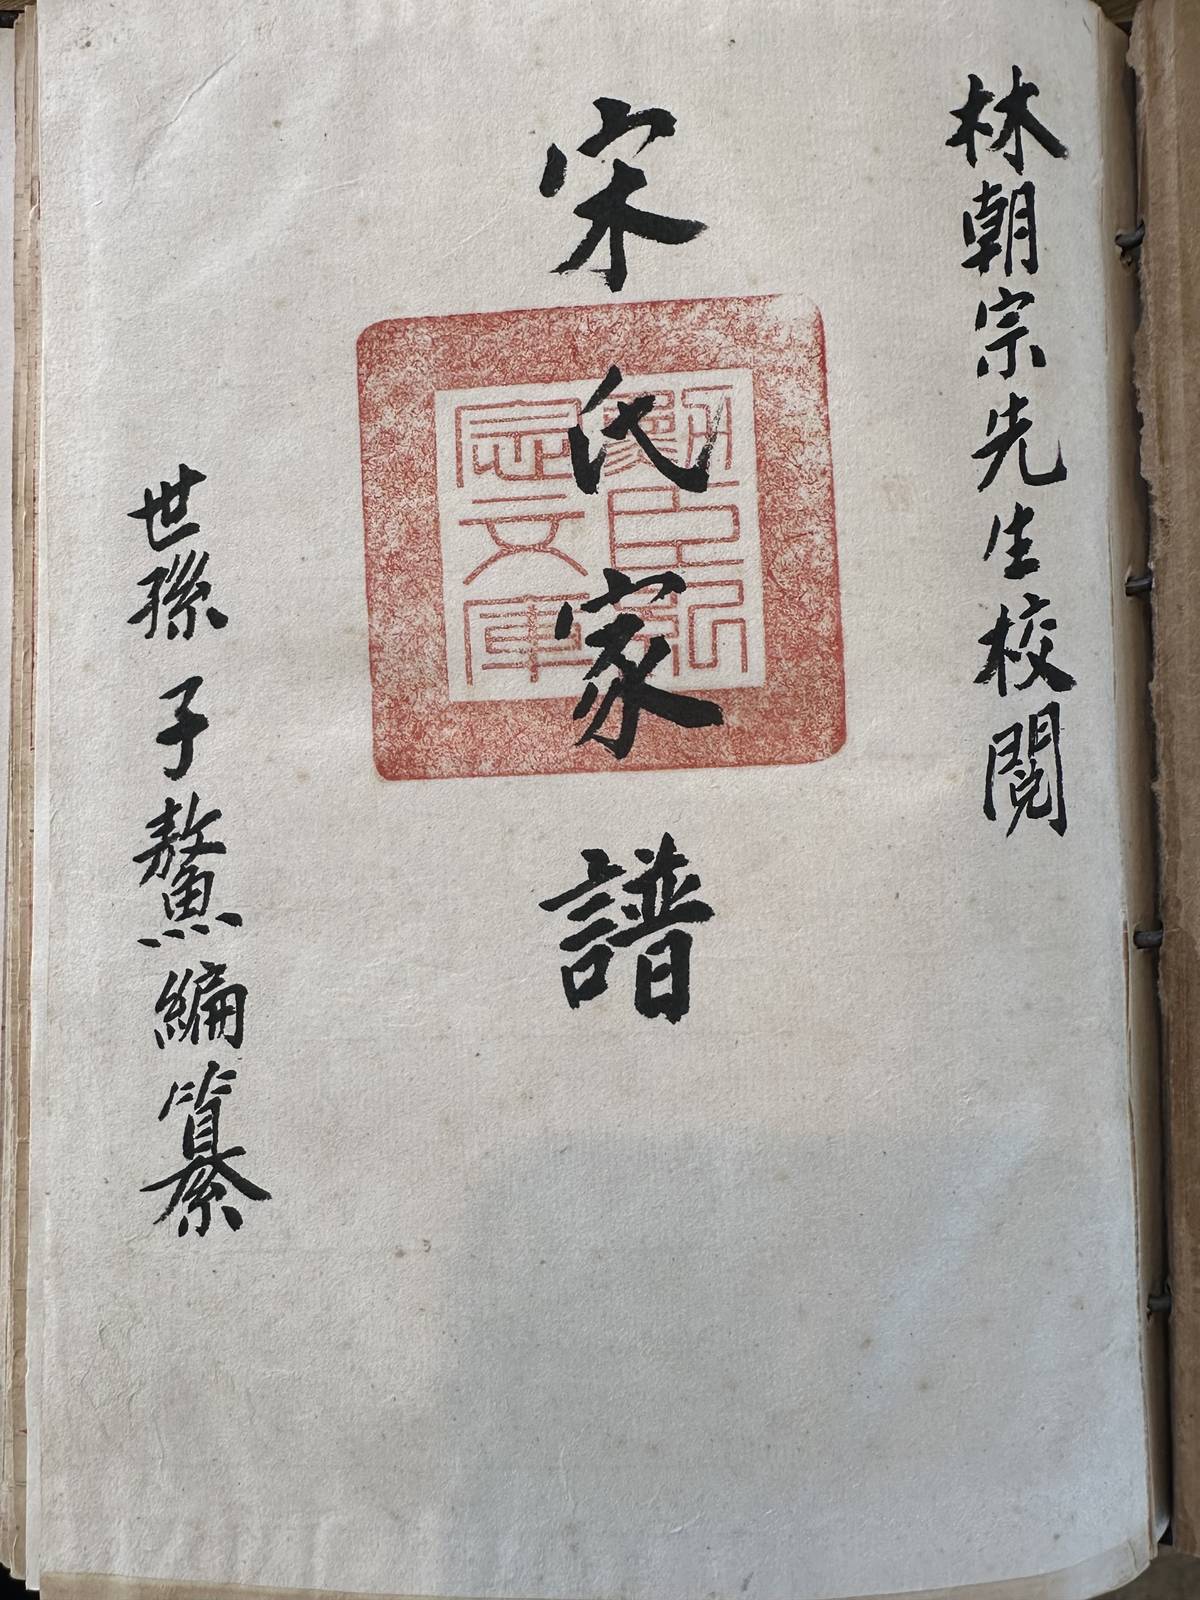 林朝宗先生校閱
宋氏家譜
世孫子鰲編纂
志文庫